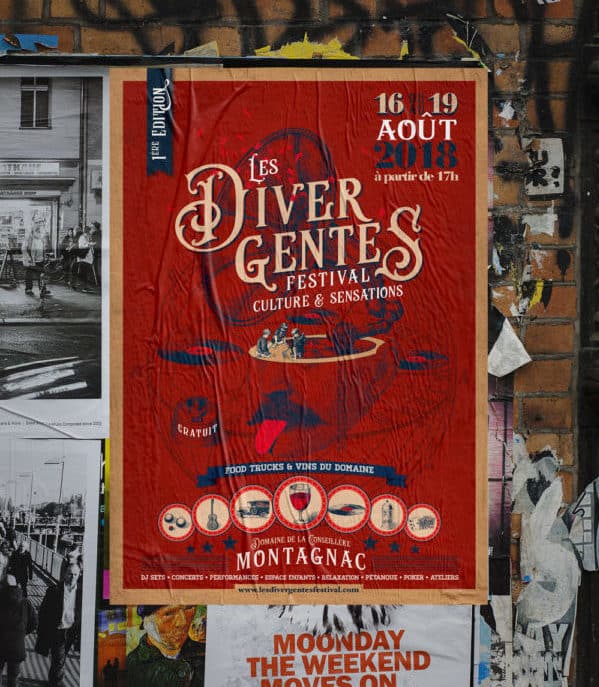 1ère Édition
16 au 19
AOÛT
2018
à partir de 17h
Les
Diver
gentes
FESTIVAL
CULTURE & SENSATIONS
GRATUIT
FOOD TRUCKS & VINS DU DOMAINE
Domaine de la Conseillère
MONTAGNAC
DJ SETS • CONCERTS • PERFORMANCES • ESPACE ENFANTS • RELAXATION • PETANQUE • POKER • ATELIERS
www.lesdivergentesfestival.com
MOONDAY
THE WEEKEND
MOVES ON